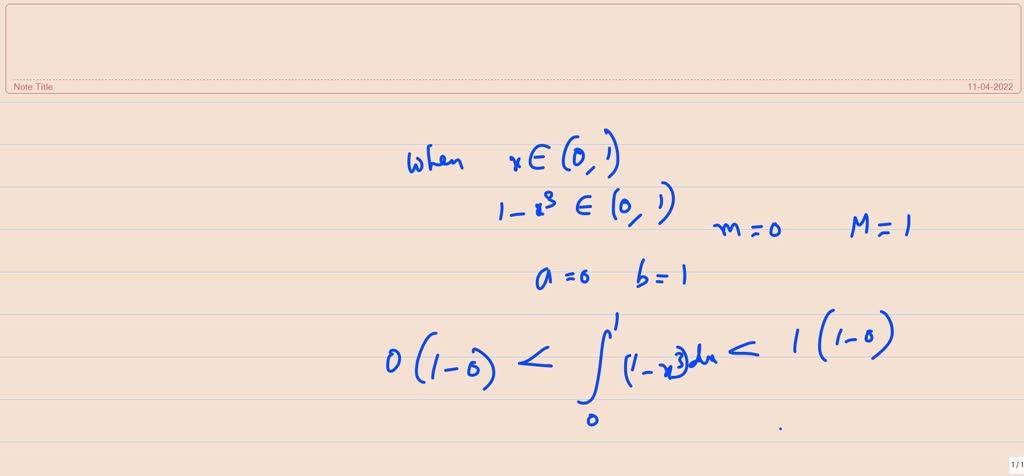 Note Title 11-04-2022
When x ∈ (0, 1)
1 - x³ ∈ (0, 1)
m = 0 M = 1
a = 0 b = 1
0 (1 - 0) < ∫₀¹ (1 - x³) dx < 1 (1 - 0)
1 / 1